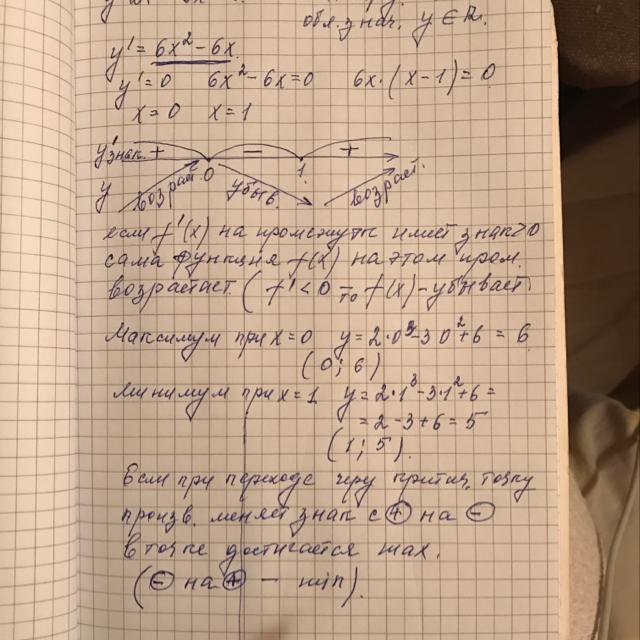 обл. знач. y ∈ R.
y' = 6x² - 6x.
y' = 0   6x² - 6x = 0   6x·(x - 1) = 0
x = 0   x = 1
y' знак. + − +
0 1
y возраст. убыв. возраст.
если f'(x) на промежутк имеет знак > 0
сама функция f(x) на этом пром.
возрастает. (f' < 0 то f(x) - убывает
Максимум при x = 0   y = 2·0³ - 3·0² + 6 = 6
(0; 6)
Минимум при x = 1   y = 2·1³ - 3·1² + 6 =
= 2 - 3 + 6 = 5
(1; 5).
Если при переходе через критич. точку
произв. меняет знак с ⊕ на ⊖
в точке достигается max.
(⊖ на ⊕ — min).